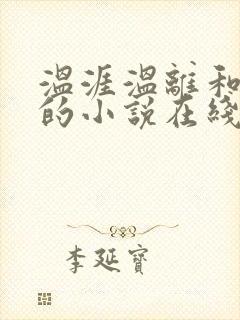 温涯温離和
的小說在綫
李延寶